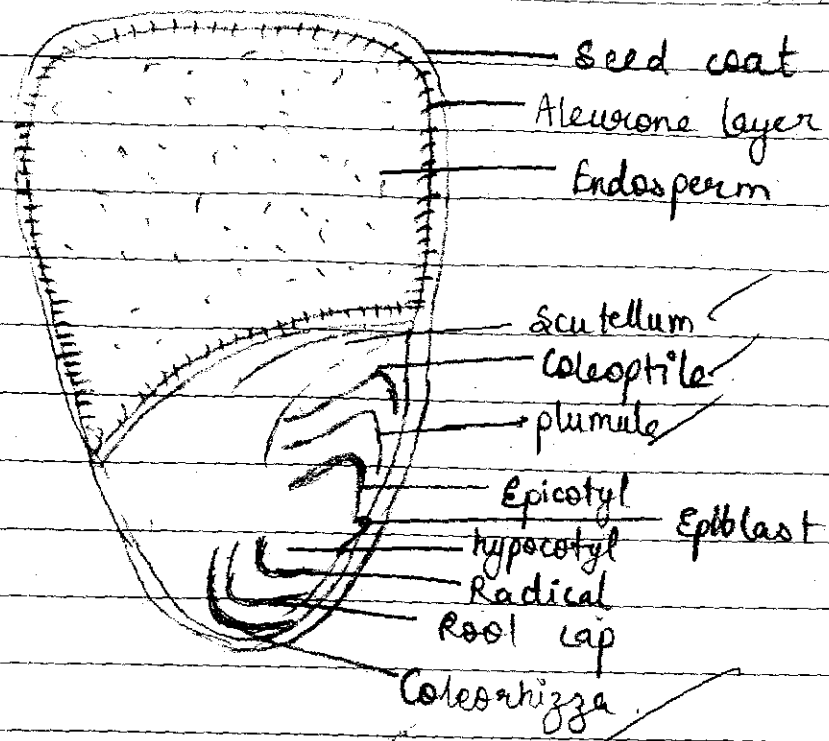 Seed coat
Aleurone layer
Endosperm
Scutellum
Coleoptile
plumule
Epicotyl
Epiblast
hypocotyl
Radical
Root cap
Coleorhizza.